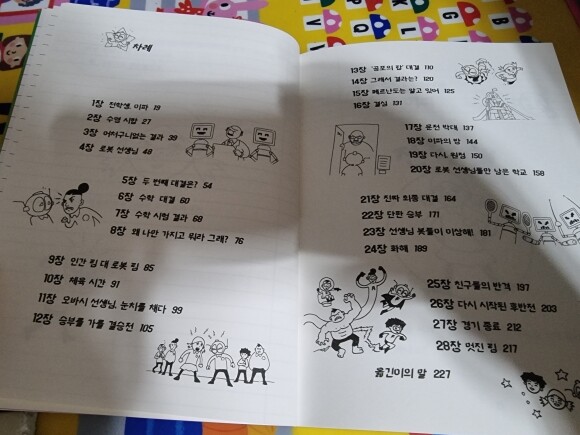 차례
1장 전학생, 이파 19
2장 수영 시합 27
3장 어처구니없는 결과 39
4장 로봇 선생님 48
5장 두 번째 대결은? 54
6장 수학 대결 60
7장 수학 시험 결과 68
8장 왜 나만 가지고 뭐라 그래? 76
9장 인간 팀 대 로봇 팀 85
10장 체육 시간 91
11장 오바시 선생님, 눈치를 채다 99
12장 승부를 가를 결승전 105
13장 '공포의 탑' 대결 110
14장 그래서 결과는? 120
15장 페르난도는 알고 있어 125
16장 결심 131
17장 문전 박대 137
18장 이파의 밤 144
19장 다시, 원심 150
20장 로봇 선생님들만 남은 학교 158
21장 진짜 최종 대결 164
22장 단판 승부 171
23장 선생님 봇들이 이상해! 181
24장 화해 189
25장 친구들의 반격 197
26장 다시 시작된 후반전 203
27장 경기 종료 212
28장 멋진 팀 217
옮긴이의 말 227